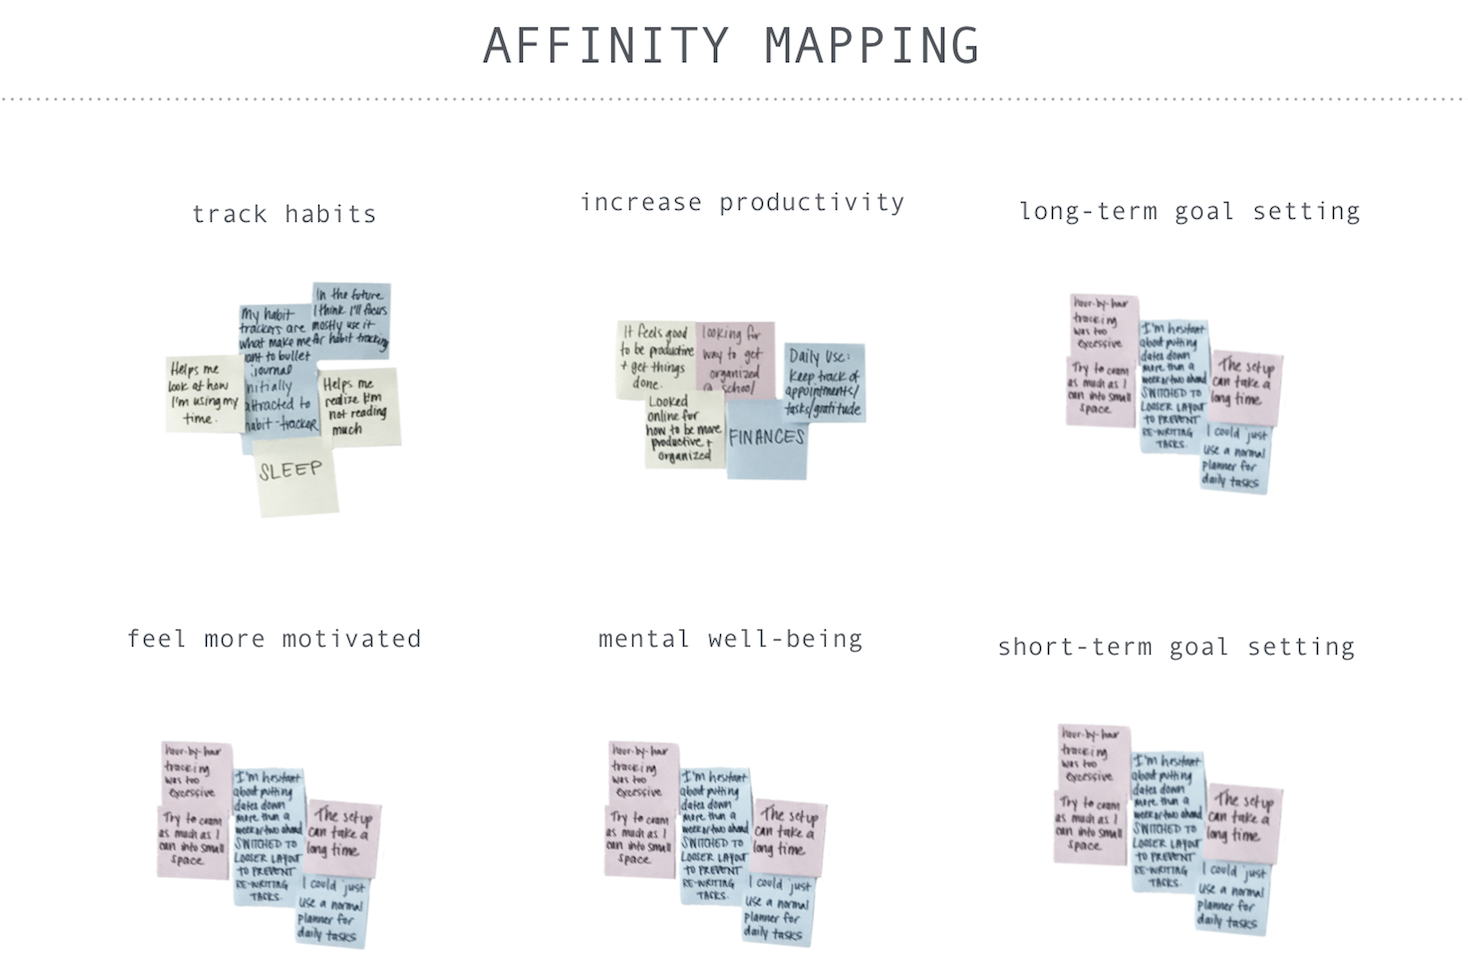 AFFINITY MAPPING
track habits
In the future
I think I'll focus
mostly use it
for habit tracking
My habit
trackers are
what make me
want to bullet
journal
initially
attracted to
habit-tracker
Helps me
look at how
I'm using my
time.
Helps me
realize I'm
not reading
much
SLEEP
increase productivity
It feels good
to be productive
+ get things
done.
looking for
way to get
organized
@ school
Daily Use:
Keep track of
appointments/
tasks/gratitude
Looked
online for
how to be more
productive +
organized
FINANCES
long-term goal setting
hour-by-hour
tracking
was too
excessive
Try to cram
as much as I
can into small
space
I'm hesitant
about putting
dates down
more than a
week or two ahead
SWITCHED TO
LOOSER LAYOUT
TO PREVENT
RE-WRITING
TASKS.
The setup
can take a
long time
I could just
use a normal
planner for
daily tasks
feel more motivated
hour-by-hour
tracking
was too
excessive
Try to cram
as much as I
can into small
space
I'm hesitant
about putting
dates down
more than a
week or two ahead
SWITCHED TO
LOOSER LAYOUT
TO PREVENT
RE-WRITING
TASKS.
The setup
can take a
long time
I could just
use a normal
planner for
daily tasks
mental well-being
hour-by-hour
tracking
was too
excessive
Try to cram
as much as I
can into small
space
I'm hesitant
about putting
dates down
more than a
week or two ahead
SWITCHED TO
LOOSER LAYOUT
TO PREVENT
RE-WRITING
TASKS.
The setup
can take a
long time
I could just
use a normal
planner for
daily tasks
short-term goal setting
hour-by-hour
tracking
was too
excessive
Try to cram
as much as I
can into small
space
I'm hesitant
about putting
dates down
more than a
week or two ahead
SWITCHED TO
LOOSER LAYOUT
TO PREVENT
RE-WRITING
TASKS.
The setup
can take a
long time
I could just
use a normal
planner for
daily tasks